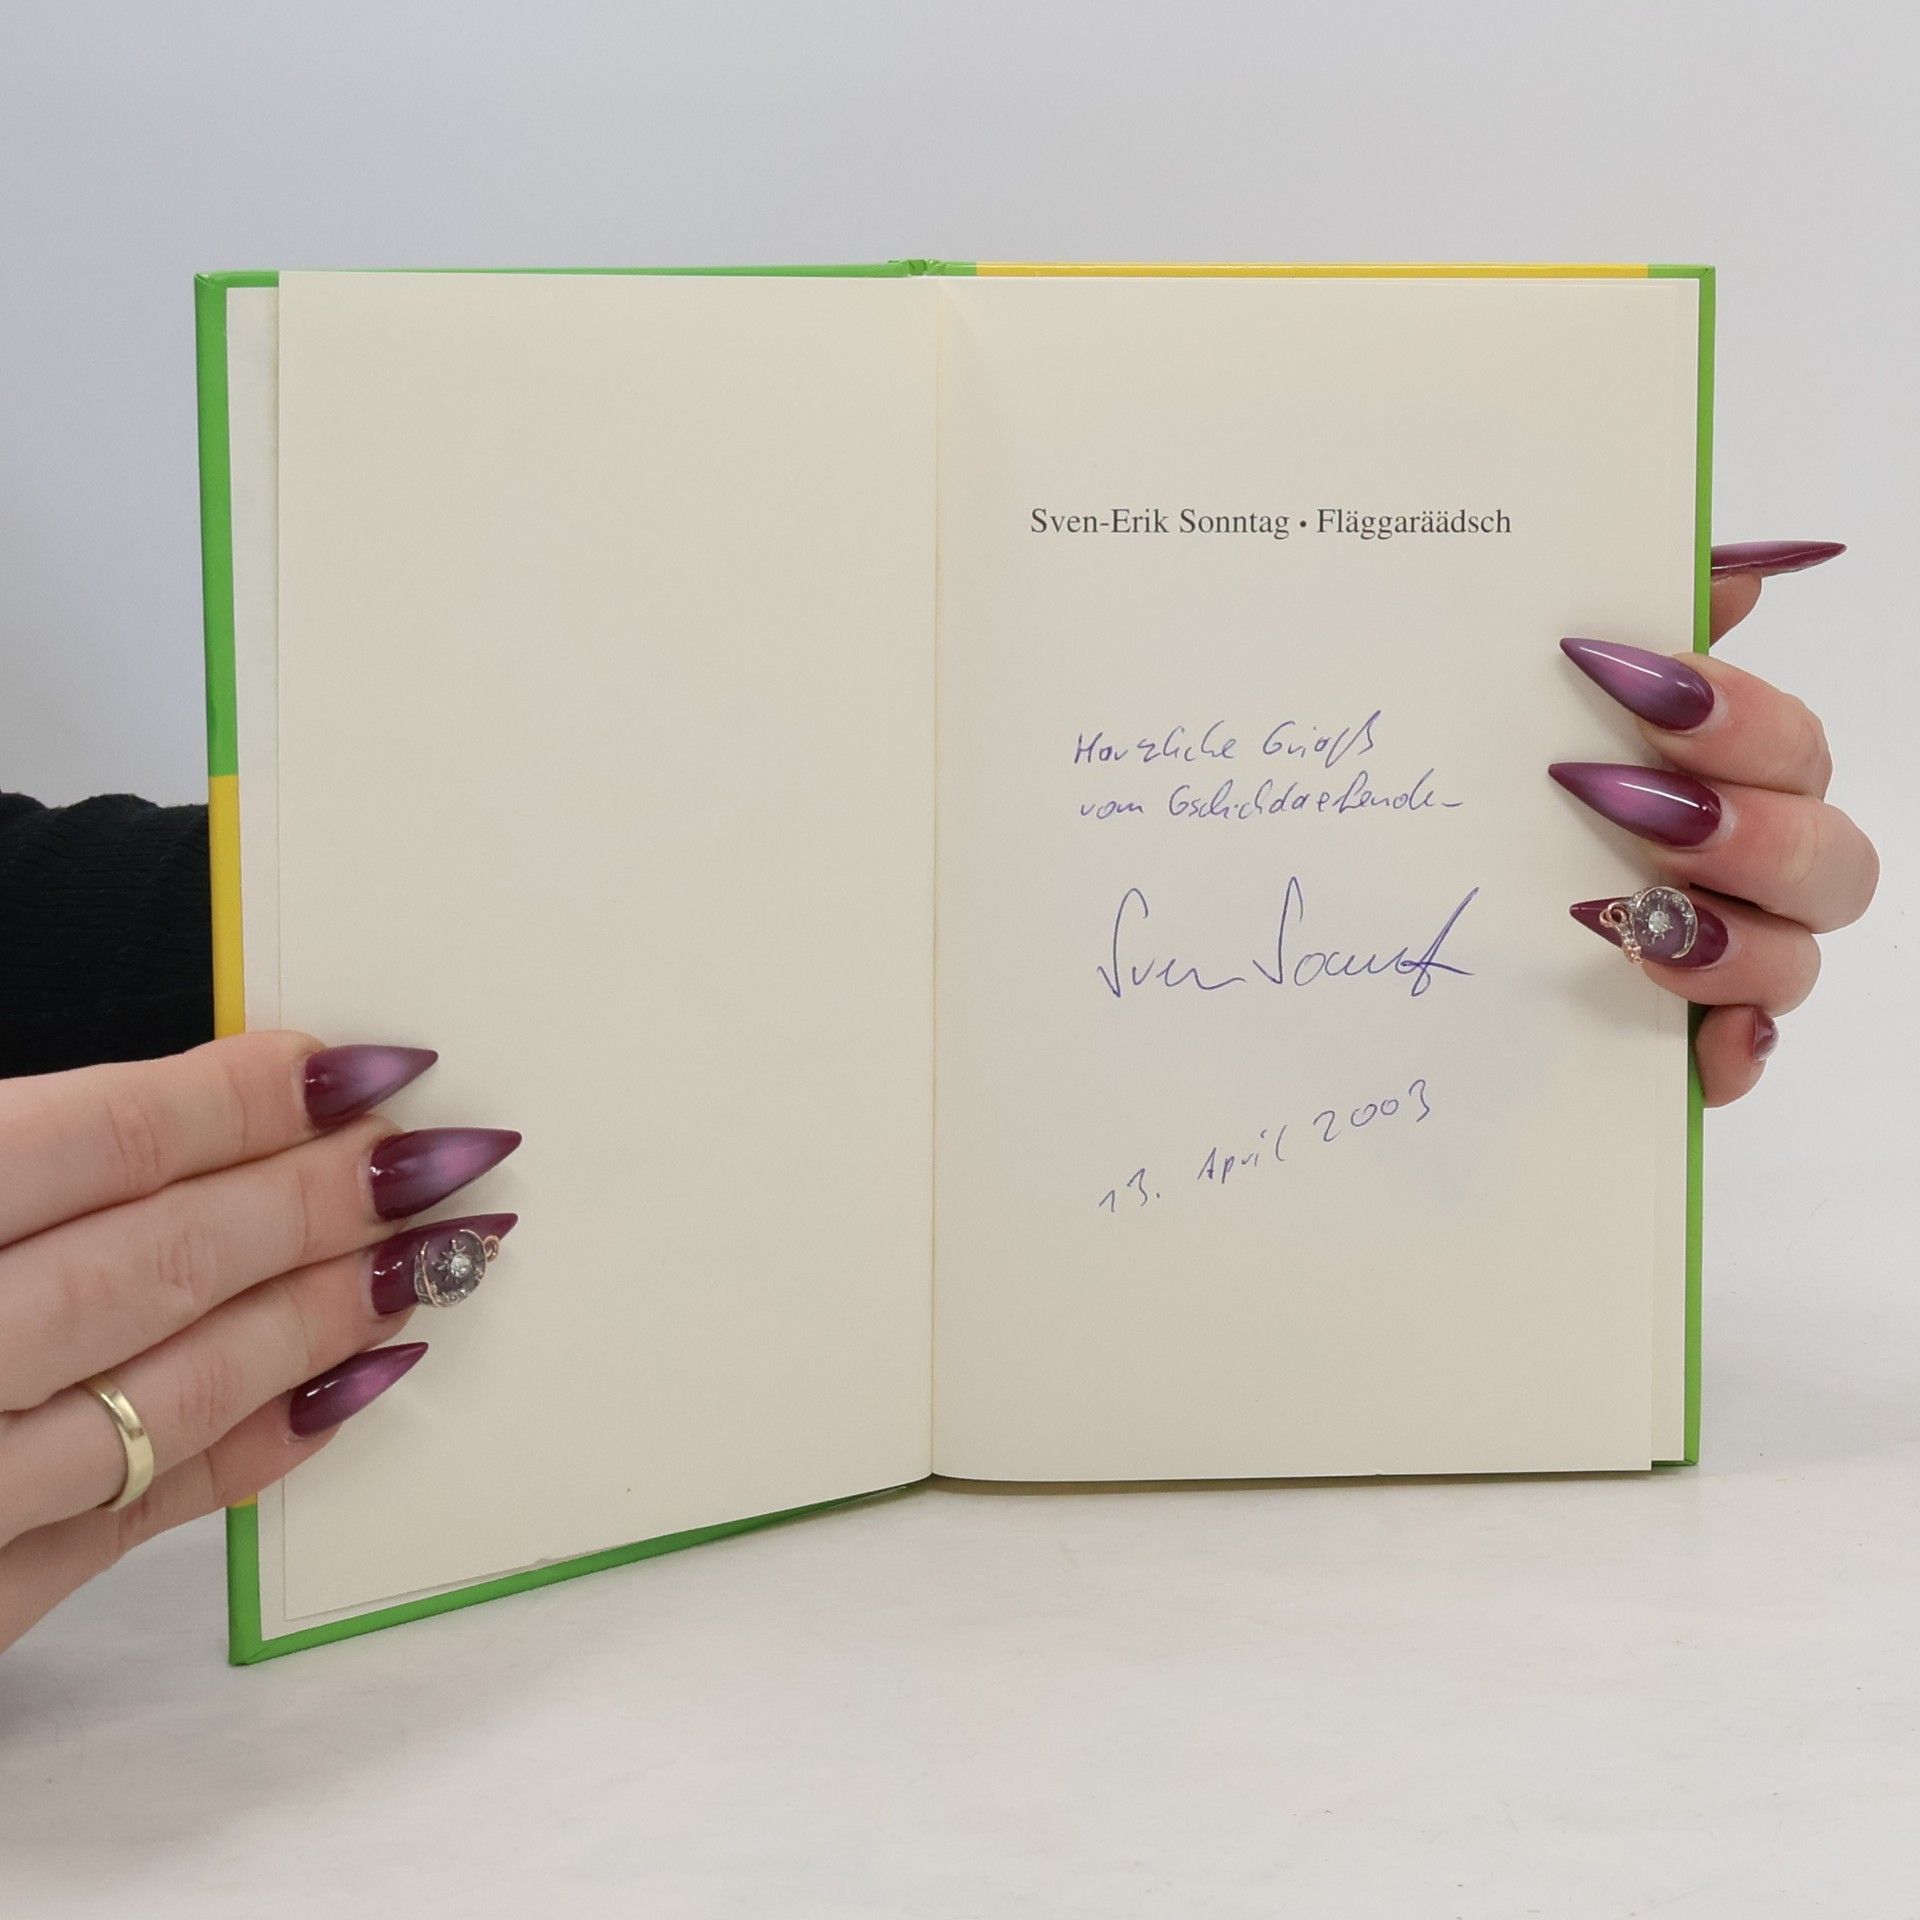 Sven-Erik Sonntag • Fläggaräädsch
Herzliche Grieß
vom
Sven Sonntag
13. April 2003